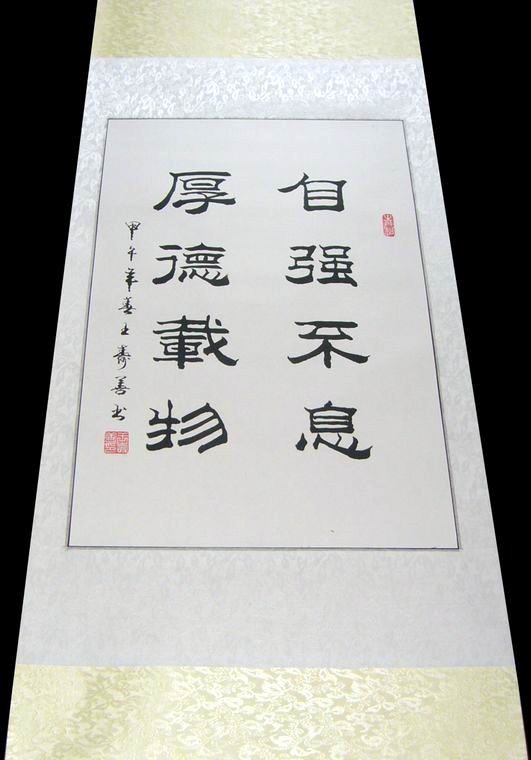 自强不息
厚德載物
甲午年善土寿善书